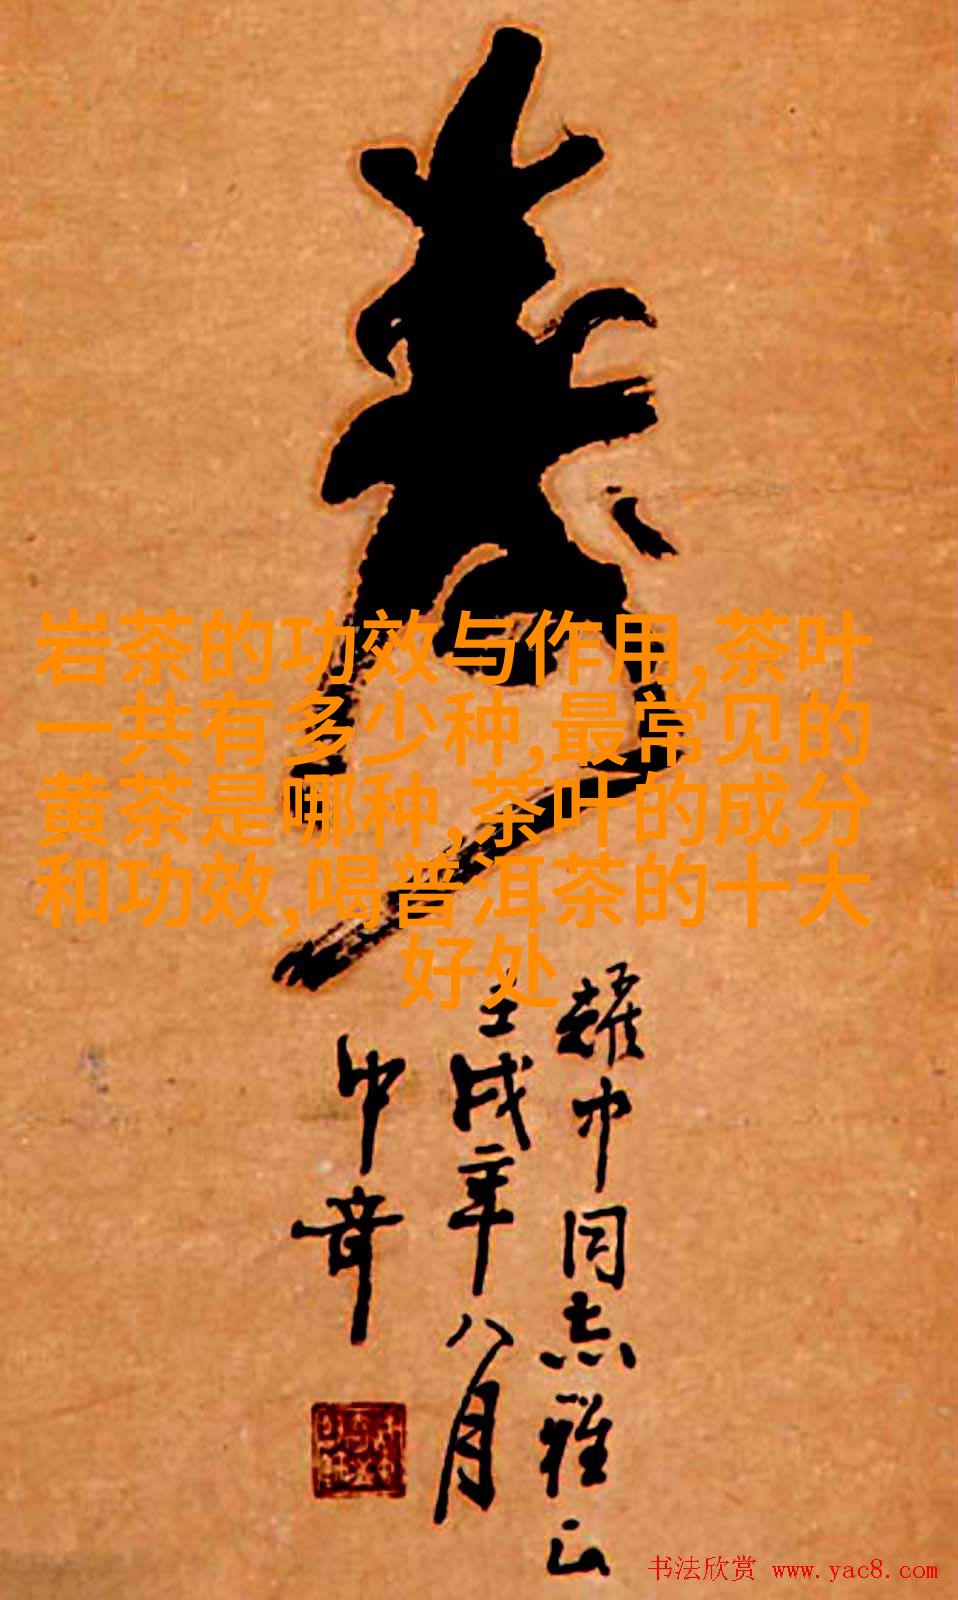 岩茶的功效与作用,茶叶
一共有多少种,最常见的
黄茶是哪种,茶叶的成分
和功效,喝普洱茶的十大
好处
寿
耀中同志雅正
壬戌年八月
中章
书法欣赏 www.yac8.com